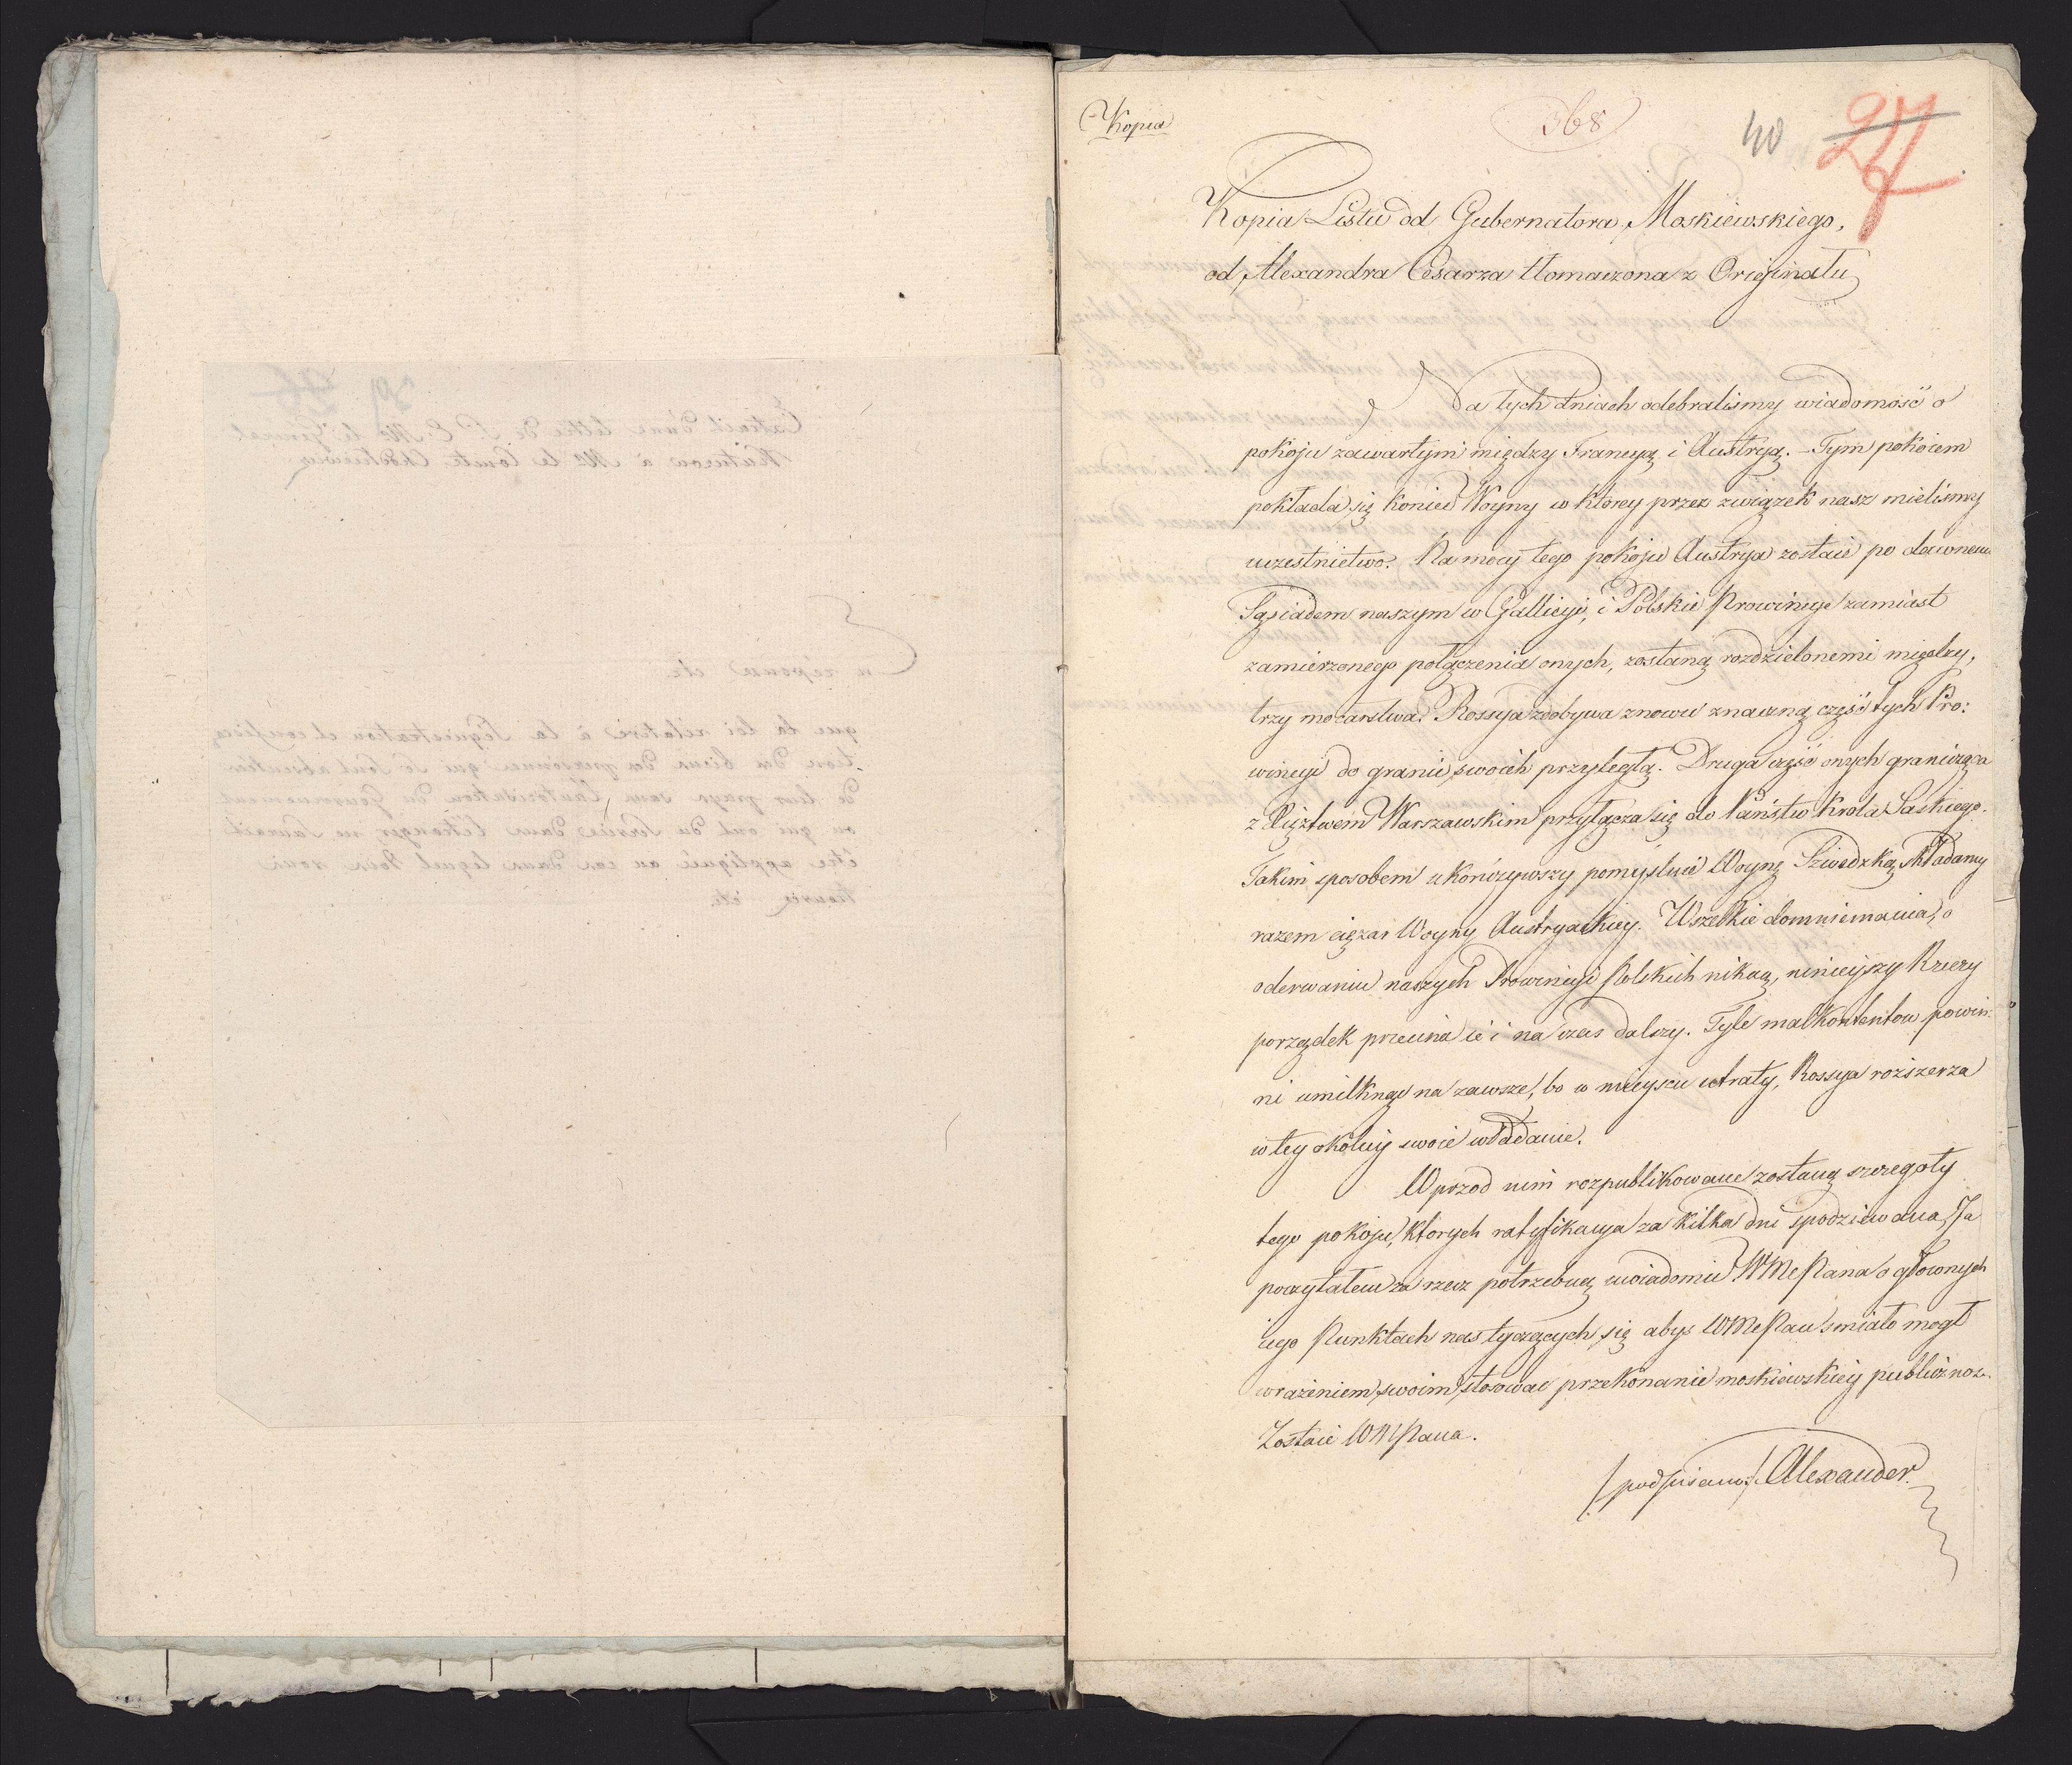 Kopia
368
40
27
Kopia Listu od Gubernatora Moskiewskiego,
od Alexandra Cesarza tłomaczona z Originału
Na tych dniach odebralismy wiadomość o
pokoju zawartym między Francyą i Austryą. – Tym pokoiem
pokłada się koniec Woyny w ktorey przez związek nasz mielismy
uczestnictwo. Na mocy tego pokoju Austrya zostaie po dawnemu
Sąsiadem naszym w Gallicyi, i Polskie Prowincye zamiast
zamierzonego połączenia onych, zostaną rozdzielonemi między,
trzy mocarstwa. Rossya zdobywa znowu znaczną część tych Pro:
wincyi do granic swoich przyległą. Druga część onych granicząca
z Xięztwem Warszawskim przyłącza się do Państw Krola Saskiego.
Takim sposobem ukończywszy pomyslnie Woynę Szwedzką, składamy
razem ciężar Woyny Austryackiey. Wszelkie domniemania, o
oderwaniu naszych Prowincyi Polskich nikną, ninieyszy Rzeczy
porządek przecina ie i na czas dalszy. Tyle malkontentow powin:
ni umilknąć na zawsze, bo w mieyscu utraty, Rossya rozszerza
w tey okolicy swoie władanie.
Wprzod nim rozpublikowane zostaną szczegoły
tego pokoju, ktorych ratyfikacya za kilka dni spodziewana, Ja
poczytałem za rzecz potrzebną uwiadomić WMc Pana o głownych
iego Punktach nas tyczących się abys WMc Pan smiało mogł
wrażeniem swoim stosować przekonanie moskiewskiey publicznos.
Zostaie WMPana.
/podpisano/ Alexander.